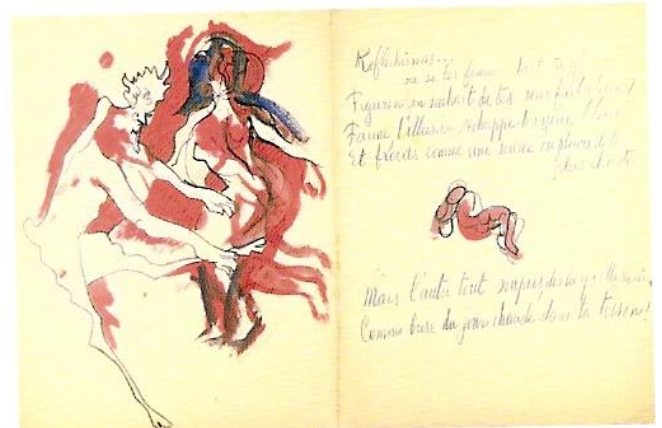 Réfléchissons...
ou si les femmes dont tu
Figurent un souhait de tes sens fabuleux!
Faune l'illusion s'échappe des yeux bleus
Et froids comme une source en pleurs de la
plus chaste
Mais l'autre tout soupirs dis-tu qu'elle contraste
Comme brise du jour chaude dans ta toison!